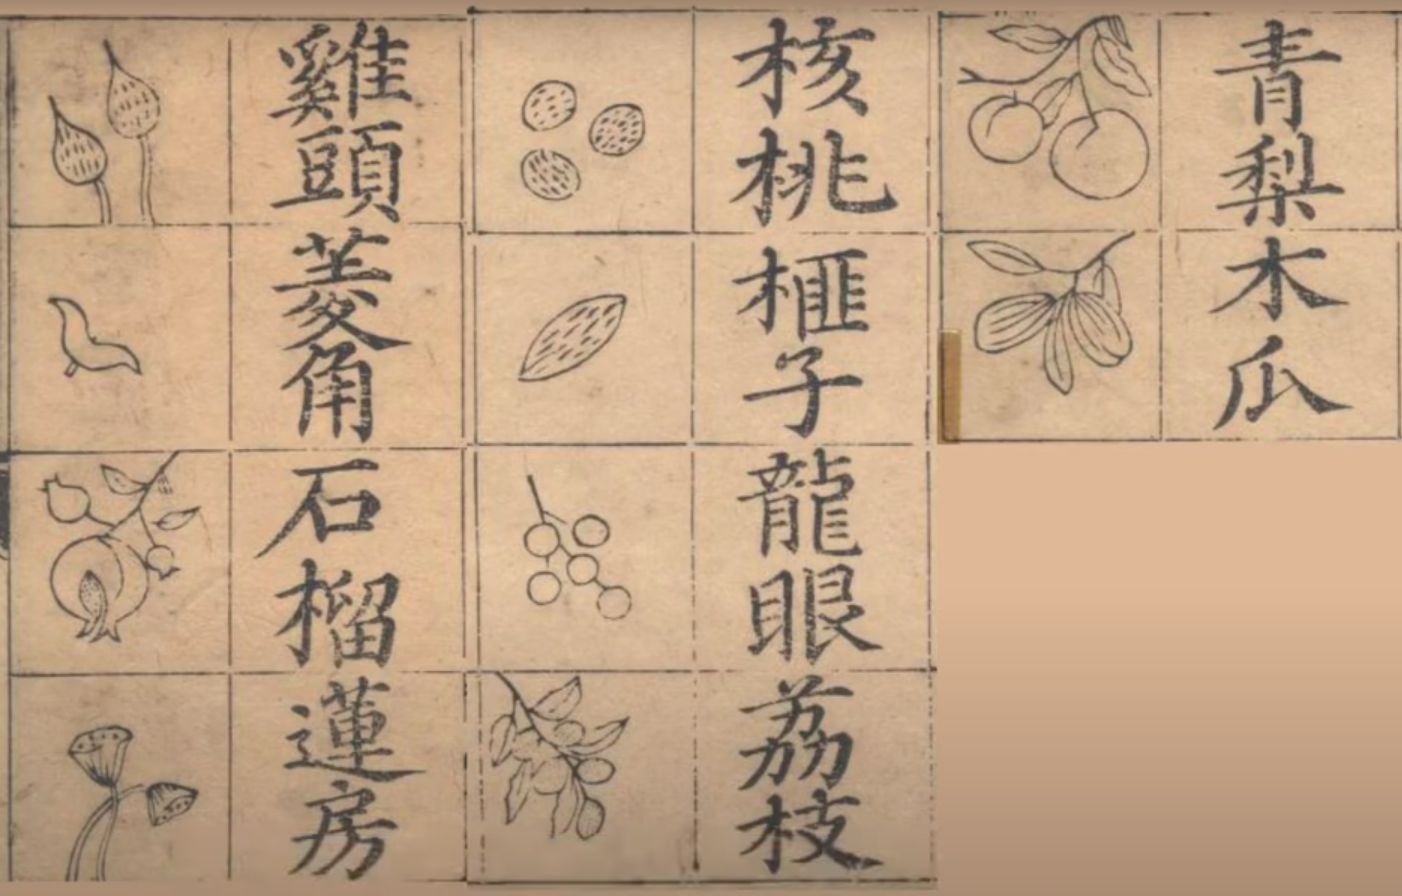 青梨
木瓜
核桃
榧子
龍眼
荔枝
雞頭
菱角
石榴
蓮房